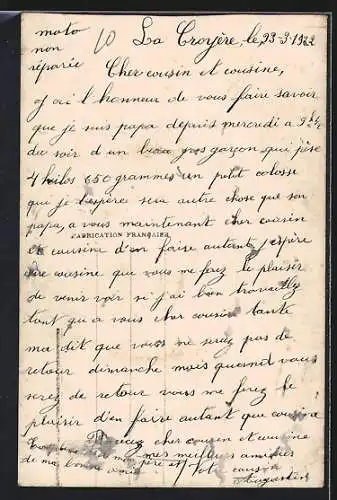 moto
non
réparée
10
La Croyère, le 23-3-1922
Cher cousin et cousine,
J ai l'honneur de vous faire savoir
que je suis papa depuis mercredi a 9 h 1/2
du soir d un beau gros garçon qui pèse
4 kilos 650 grammes un petit colosse
qui je l'espère sera autre chose que son
papa, a vous maintenant cher cousin
FABRICATION FRANÇAISE
et cousine d'en faire autant j'espère
cousine que vous me ferez le plaisir
de venir voir si j'ai bon travailly
tant qu a vous cher cousin tante
ma dit que vous ne seriez pas de
retour dimanche mais quand vous
serez de retour vous me ferez le
plaisir d'en faire autant que cousine
Recevez cher cousin et cousine
de ma bonne mes meilleurs amitiés
père et Votre cousin
Augustin